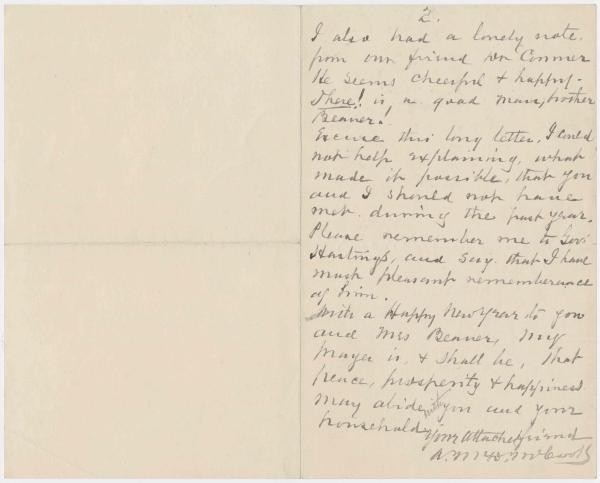 2.
I also had a lovely note.
from our friend Dr Conner
He seems cheerful & happy-
There! is, a good man, brother
Beaver!
Excuse this long letter. I could
not help explaining, what
made it possible, that you
and I should not have
met. during the past year.
Please remember me to Gov.
Hastings, and say that I have
much pleasant rememberance
of him.
With a Happy New Year to you
and Mrs Beaver, My
prayer is, & shall be, that
peace, prosperity & happiness
may abide with you and your
household,
Your attached friend
A. McD. McCook